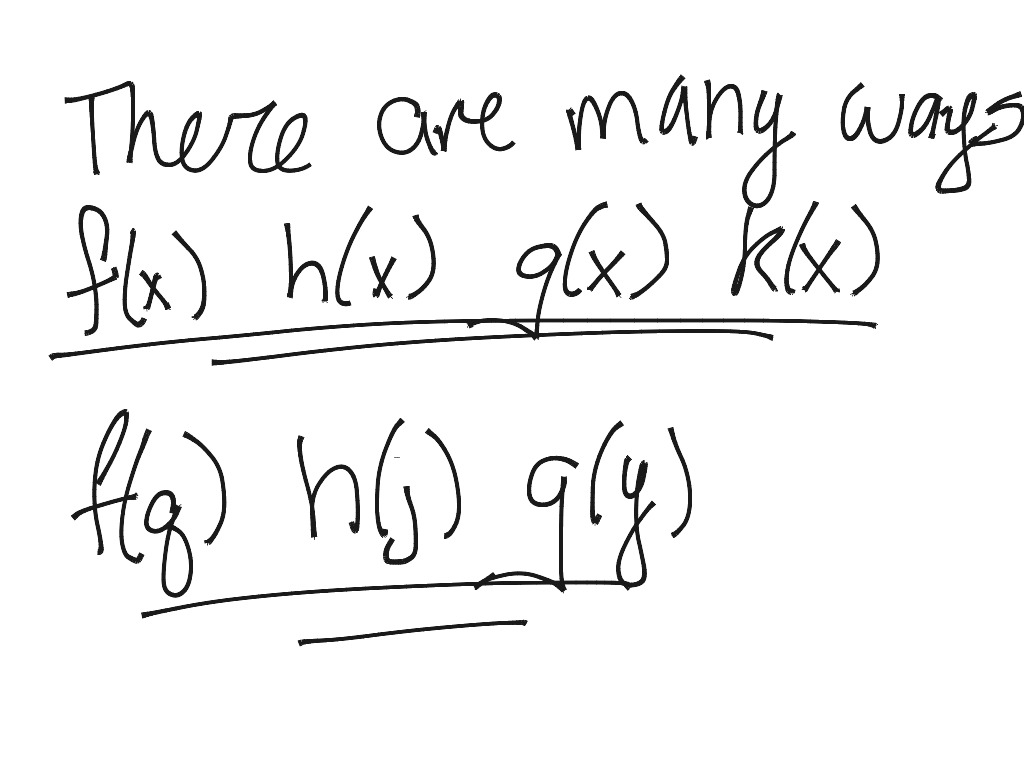 There are many ways
f(x) h(x) g(x) k(x)
f(g) h(j) g(y)